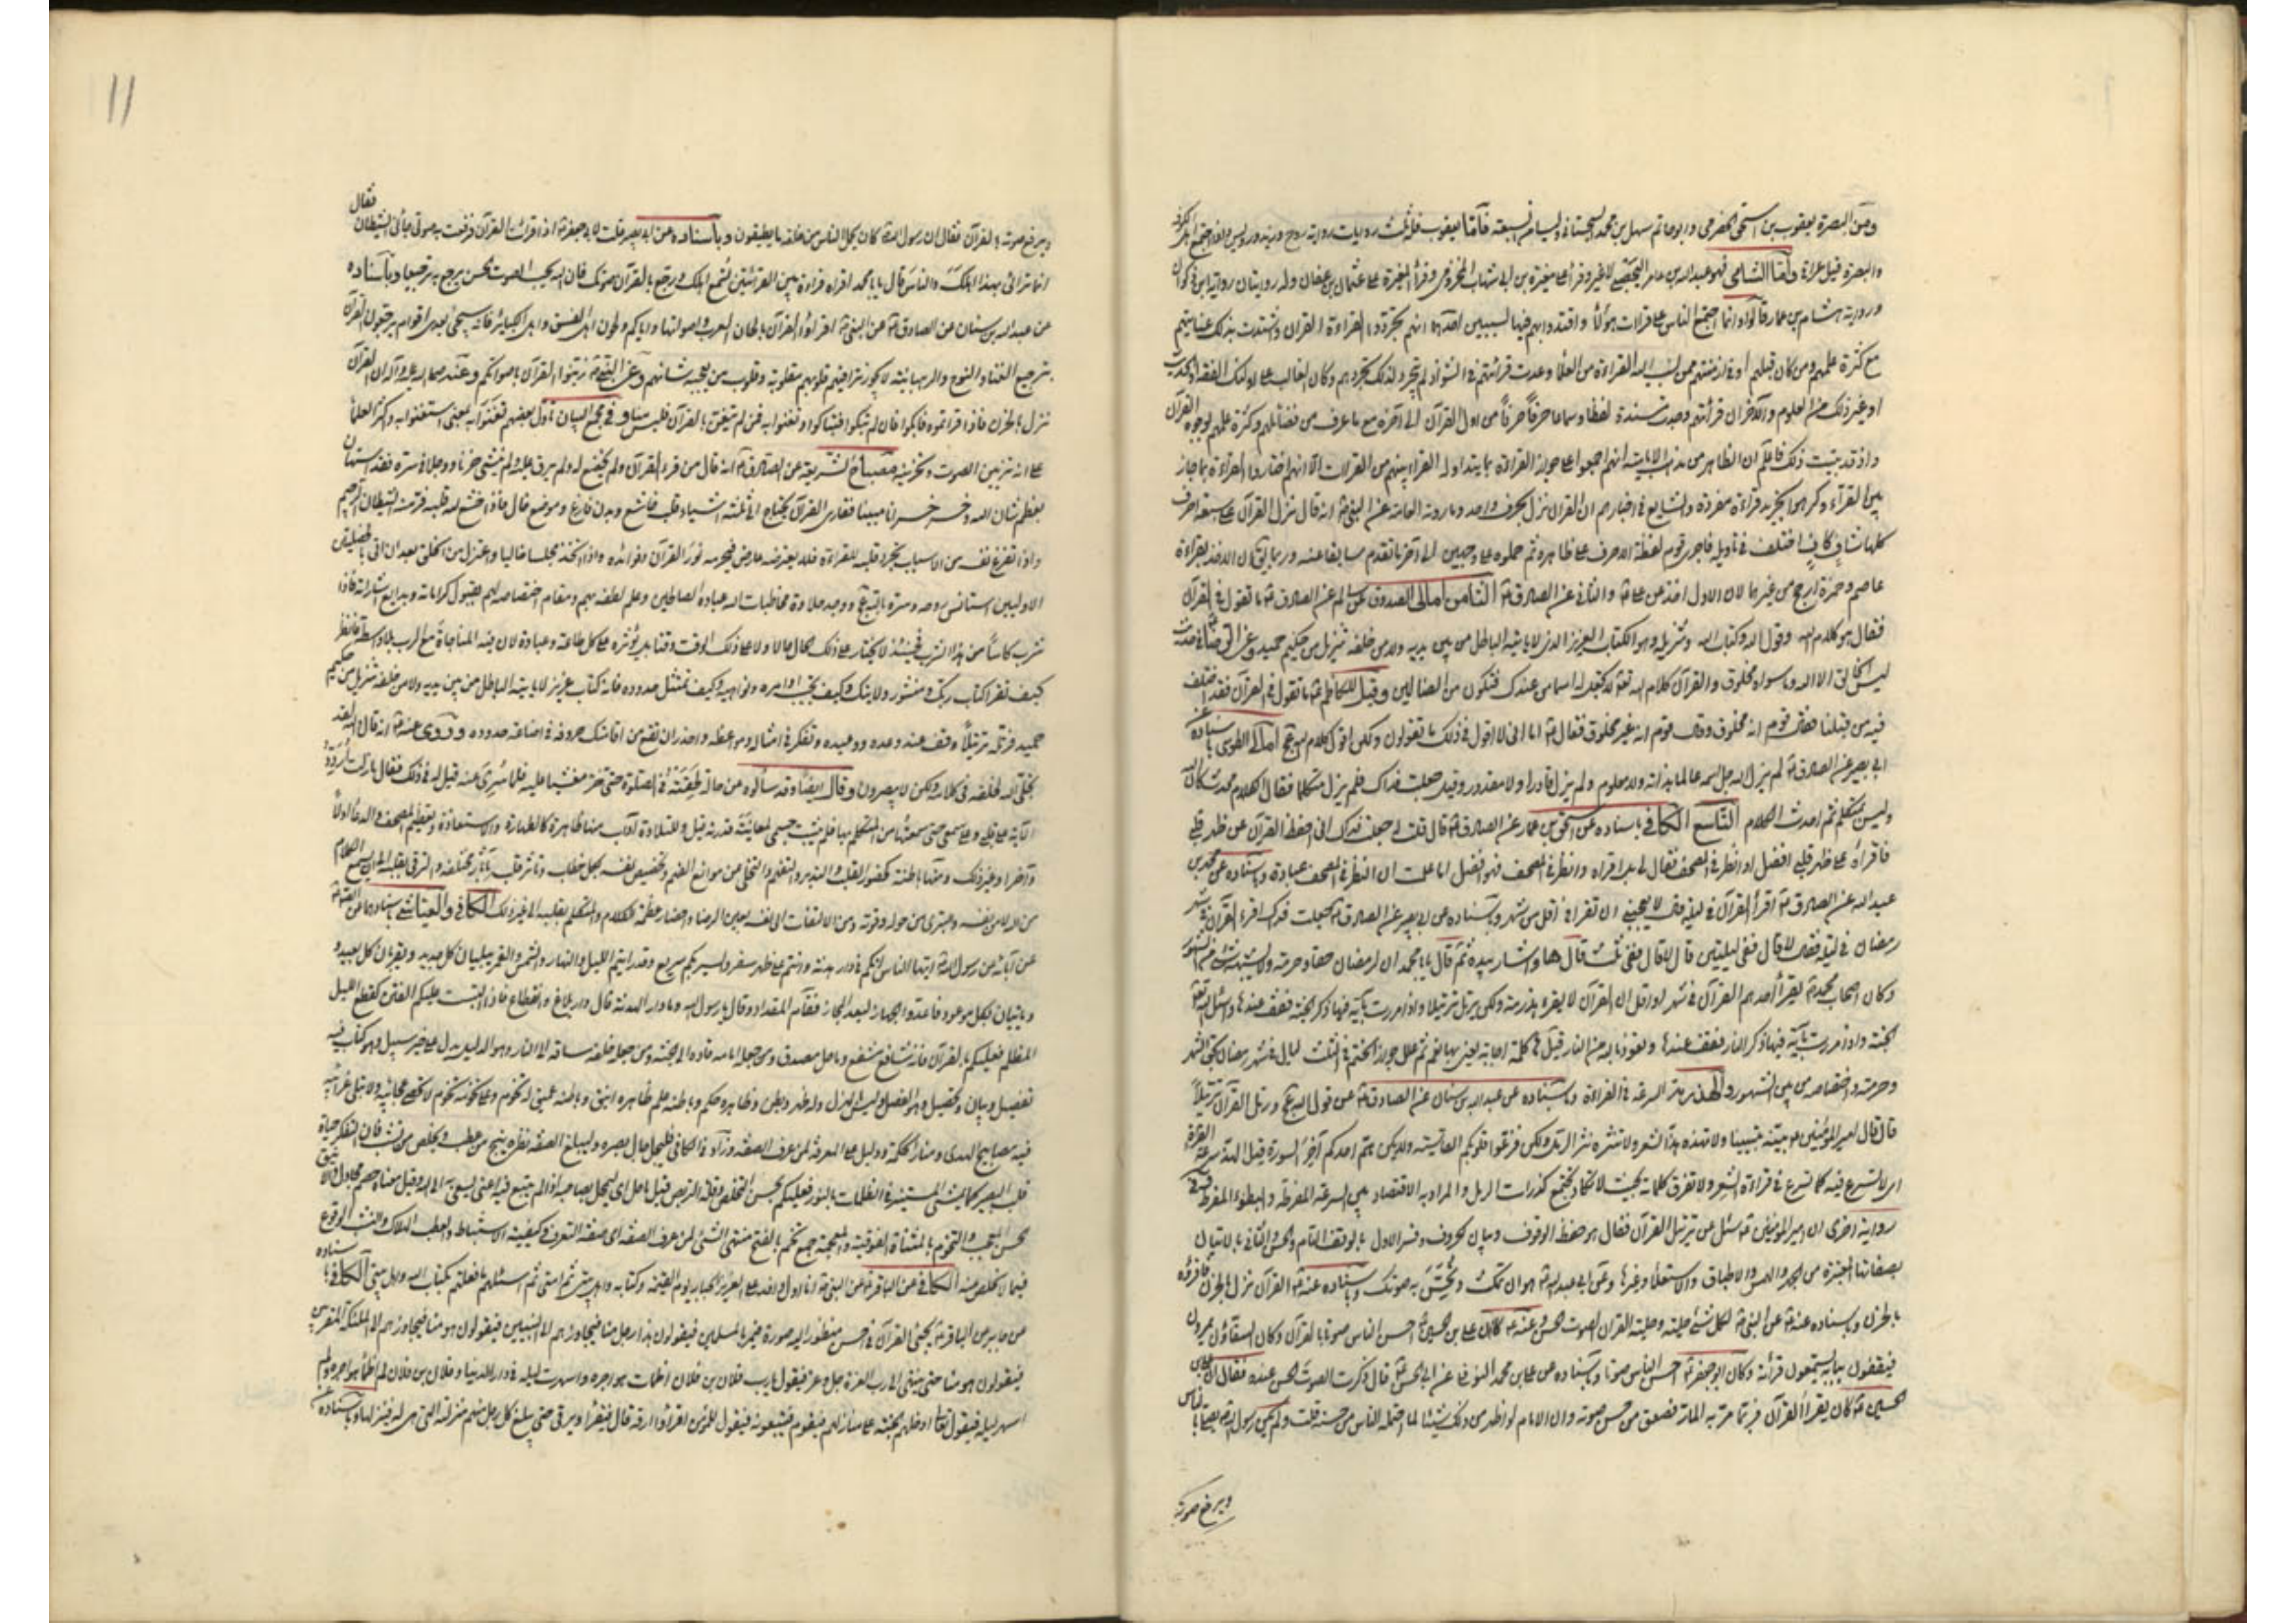 ومن البصرة يعقوب بن اسحق الحضرمي وابو حاتم سهل بن محمد السجستاني وليسا من السبعة فاما يعقوب فله ثلث روايات رواية روح وزيد ورويس واذا اجتمع اهل الكوفة
والبصرة قيل عراق واما الشامي فهو عبد الله بن عامر اليحصبي لا غير وقرأ على مغيرة بن ابي شهاب المخزومي وقرأ المغيرة على عثمان بن عفان وله روايتان رواية ابن ذكوان
ورواية هشام بن عمار قالوا وانما اجتمع الناس على قراءة هؤلاء واقتدوا بهم فيها لسببين احدهما انهم تجردوا لقراءة القران واشتدت بذلك عنايتهم
مع كثرة علمهم ومن كان قبلهم او في ازمنتهم ممن نسب اليه القراءة من العلماء وعدت قراءتهم في الشواذ لم يتجرد لذلك تجردهم وكان الغالب على اولئك الفقه او الحديث
او غير ذلك من العلوم والآخر ان قرائتهم وجدت مسندة لفظا وسماعا حرفا حرفا من اول القرآن الى آخره مع ما عرف من فضائلهم وكثرة علمهم بوجوه القرآن
واذ قد تبينت ذلك فاعلم ان الظاهر من مذهب الامامية انهم اجمعوا على جواز القراءة بما يتداوله القراء بينهم من القراءات الا انهم اختاروا القراءة بما جاز
بين القراء وكرهوا تجريد قراءة مفردة والشايع في اخبارهم ان القران نزل بحرف واحد وما روته العامة عن النبي ص انه قال نزل القرآن على سبعة احرف
كلها شاف كاف اختلف في تاويله فاجرى قوم لفظ الاحرف على ظاهره ثم حملوه على وجهين الى آخر ما تقدم
عاصم وحمزة ارجح من غيرهما لان الاول اخذ عن علي ع والثاني عن الصادق ع الثامن امالي الصدوق عن سالم عن الصادق ع ما تقول في القرآن
فقال هو كلام الله وقول الله وكتاب الله وتنزيله وهو الكتاب العزيز الذي لا ياتيه الباطل من بين يديه ولا من خلفه تنزيل من حكيم حميد وعن الرضا ع
ليس الخالق الا الله وما سواه مخلوق والقرآن كلام الله تعالى لا تجعل له اسما من عندك فتكون من الضالين وقيل للكاظم ع ما تقول في القرآن فقد اختلف
فيه من قبلنا فقال قوم انه مخلوق وقال قوم انه غير مخلوق فقال ع اما انى لا اقول في ذلك ما يقولون ولكن اقول كلام الله عز وجل امالي الطوسي باسناده عن
ابي بصير عن الصادق ع لم يزل الله جل اسمه عالما بذاته ولا معلوم ولم يزل قادرا ولا مقدور وقيل جعلت فداك فلم يزل متكلما فقال الكلام محدث كان الله
وليس بمتكلم ثم احدث الكلام التاسع الكافي باسناده عن اسحق بن عمار عن الصادق ع قال قلت له جعلت فداك انى احفظ القرآن عن ظهر قلبي
فاقرأه على ظهر قلبي افضل او انظر في المصحف فقال لي بل اقراه وانظر في المصحف فهو افضل اما علمت ان النظر في المصحف عبادة وباسناده عن محمد بن
عبد الله عن الصادق ع أقرأ القرآن في ليلة فقال لا يعجبني ان تقراه في اقل من شهر وباسناده عن ابي بصير عن الصادق ع جعلت فداك اقرء القرآن في شهر
رمضان في ليلة فقال لا قال ففي ليلتين قال لا قال ففي ثلث قال ها واشار بيده ثم قال يا با محمد ان لرمضان حقا وحرمة ولا يشبهه شيء من الشهور
وكان اصحاب محمد ص يقرأ احدهم القرآن في شهر او اقل ان القرآن لا يقرء هذرمة ولكن يرتل ترتيلا واذا مررت بآية فيها ذكر الجنة فقف عندها واسئل الله
الجنة واذا مررت بآية فيها ذكر النار فقف عندها وتعوذ بالله من النار
وحرمته واختصاصه من بين الشهور والهذرمة السرعة في القراءة وباسناده عن عبد الله بن سنان عن الصادق ع عن قول الله عز وجل ورتل القرآن ترتيلا
قال قال امير المؤمنين ع بينه تبيينا ولا تهذه هذ الشعر ولا تنثره نثر الرمل ولكن فزعوا قلوبكم القاسية ولا يكن هم احدكم آخر السورة قيل الهذ سرعة القراءة
اى لا تسرع فيه كما تسرع في قراءة الشعر ولا تفرق كلماته بحيث لا تكاد تجتمع كذرات الرمل والمراد به الاقتصاد بين السرعة المفرطة والبطوء المفرط وفي
رواية اخرى ان امير المؤمنين ع سئل عن ترتيل القرآن فقال هو حفظ الوقوف وبيان الحروف وفسر الاول بالوقف التام والحسن والثاني بالاتيان
بصفاتها المعتبرة من الجهر والهمس والاطباق والاستعلاء وغيرها وعن ابي عبد الله ع هو ان تمكث وتحسن به صوتك وباسناده عنه ع القرآن نزل بالحزن فاقرؤه
بالحزن وباسناده عنه ع عن النبي ص لكل شيء حلية وحلية القران الصوت الحسن وعنه ع كان علي بن الحسين ع احسن الناس صوتا بالقرآن وكان السقاؤن يمرون
فيقفون ببابه يستمعون قرائته وكان ابو جعفر ع احسن الناس صوتا وباسناده عن علي بن محمد النوفلي عن ابي الحسن ع قال ذكرت الصوت الحسن عنده فقال ان علي بن
الحسين ع كان يقرأ القرآن فربما مر به المار فصعق من حسن صوته وان الامام لو اظهر من ذلك شيئا لما احتمله الناس من حسنه قلت ولم يكن رسول الله ص يصلي بالناس
ويرفع صوته
11
ويرفع صوته بالقرآن فقال ان رسول الله ص كان يحمل الناس من خلفه ما يطيقون وباسناده عن ابي بصير قلت لابي جعفر ع اذا قرأت القرآن فرفعت به صوتى جاءنى الشيطان فقال
انما ترائى بهذا اهلك والناس قال يا با محمد اقراه قراءة بين القراءتين تسمع اهلك ورجع بالقرآن صوتك فان الله يحب الصوت الحسن يرجع به ترجيعا وباسناده
عن عبد الله بن سنان عن الصادق ع عن النبي ص اقرؤا القرآن بالحان العرب واصواتها واياكم ولحون اهل الفسق واهل الكبائر فانه سيجئ بعدى اقوام يرجعون القرآن
ترجيع الغناء والنوح والرهبانية لا يجوز تراقيهم قلوبهم مقلوبة وقلوب من يعجبه شانهم وعن النبي ص زينوا القرآن باصواتكم وعنه صلى الله عليه وآله ان القرآن
نزل بالحزن فاذا قراتموه فابكوا فان لم تبكوا فتباكوا وتغنوا به فمن لم يتغن بالقرآن فليس منا وفي مجمع البيان تاول بعضهم تغنوا به بمعنى استغنوا به واكثر العلماء
على انه تزيين الصوت وتحزينه مصباح الشريعة عن الصادق ع انه قال من قرء القرآن ولم يخضع له ولم يرق عليه ولم ينشئ حزنا ووجلا في سره فقد استهان
بعظم شان الله وخسر خسرانا مبينا فقارى القرآن يحتاج الى ثلثة اشياء قلب خاشع وبدن فارغ وموضع خال فاذا خشع لله قلبه فر منه الشيطان الرجيم
واذا تفرغ نفسه من الاسباب تجرد قلبه للقراءة فلا يعترضه عارض فيحرمه نور القرآن وفوائده واذا اتخذ مجلسا خاليا واعتزل من الخلق بعد ان اتى بالخصلتين
الاوليين استانس روحه وسره بالله عز وجل ووجد حلاوة مخاطبات الله عباده الصالحين وعلم لطفه بهم ومقام اختصاصه لهم بقبول كراماته وبدايع اشاراته فاذا
شرب كاسا من هذا الشرب فحينئذ لا يختار على ذلك الحال حالا ولا على ذلك الوقت وقتا بل يؤثره على كل طاعة وعبادة لان فيه المناجاة مع الرب بلا واسطة فانظر
كيف تقرا كتاب ربك ومنشور ولايتك وكيف تجيب اوامره ونواهيه وكيف تمتثل حدوده فانه كتاب عزيز لا ياتيه الباطل من بين يديه ولا من خلفه تنزيل من حكيم
حميد فرتله ترتيلا وقف عند وعده ووعيده وتفكر في امثاله ومواعظه واحذر ان تقع من اقامتك حروفه في اضاعة حدوده وروى عنه ع انه قال والله لقد
تجلى الله لخلقه في كلامه ولكن لا يبصرون وقال ايضا وقد سألوه عن حالة لحقته في الصلوة حتى خر مغشيا عليه فلما سرى عنه قيل له في ذلك فقال ما زلت اردد
الآية على قلبى وعلى سمعى حتى سمعتها من المتكلم بها فلم يثبت جسمى لمعاينة قدرته قيل وللتلاوة آداب منها ظاهرة كالطهارة والاستعاذة وتعظيم المصحف والدعاء اولا
وآخرا وغير ذلك ومنها باطنة كحضور القلب والتدبر والتفهم والتخلى عن موانع الفهم وتخصيص نفسه بكل خطاب وتاثر قلبه بآثار مختلفة والترقى بقلبه الى ان يسمع الكلام
من الله لا من نفسه والتبرى من حوله وقوته ومن الالتفات الى نفسه بعين الرضا واحضار عظمة الكلام والمتكلم بقلبه الى غير ذلك الكافي والعياشي باسنادهما عن الصادق ع
عن آبائه عن رسول الله ص ايها الناس انكم في دار هدنة وانتم على ظهر سفر والسير بكم سريع وقد رايتم الليل والنهار والشمس والقمر يبليان كل جديد ويقربان كل بعيد و
ياتيان بكل موعود فاعدوا الجهاز لبعد المجاز فقام المقداد وقال يا رسول الله وما دار الهدنة قال دار بلاغ وانقطاع فاذا التبست عليكم الفتن كقطع الليل
المظلم فعليكم بالقرآن فانه شافع مشفع وماحل مصدق ومن جعله امامه قاده الى الجنة ومن جعله خلفه ساقه الى النار وهو الدليل يدل على خير سبيل وهو كتاب فيه
تفصيل وبيان وتحصيل وهو الفصل ليس بالهزل وله ظهر وبطن فظاهره حكم وباطنه علم ظاهره انيق وباطنه عميق له تخوم وعلى تخومه تخوم لا تحصى عجائبه ولا تبلى غرائبه
فيه مصابيح الهدى ومنار الحكمة ودليل على المعرفة لمن عرف الصفة وزاد في الكافي فليجل جال بصره وليبلغ الصفة نظره ينج من عطب ويخلص من نشب فان التفكر حياة
قلب البصير كما يمشى المستنير في الظلمات بالنور فعليكم بحسن التخلص وقلة التربص
والتخوم بالمثناة الفوقية والمعجمة جمع تخم بالفتح منتهى الشئ لمن عرف الصفة اى صفة التعرف وكيفية الاستنباط والعطب الهلاك والنشب الوقوع
فيما لا مخلص منه الكافي عن الباقر ع عن النبي ص انا اول وافد على العزيز الجبار يوم القيمة وكتابه واهل بيتى ثم امتى ثم اسئلهم ما فعلتم بكتاب الله واهل بيتى الكافي باسناده
عن جابر عن الباقر ع يجئ القرآن في احسن منظور اليه صورة فيمر بالمسلمين فيقولون هذا رجل منا فيجاوزهم الى النبيين فيقولون هو منا فيجاوزهم الى الملئكة المقربين
فيقولون هو منا حتى ينتهى الى رب العزة جل وعز فيقول يا رب فلان بن فلان اظمات هواجره واسهرت ليله في دار الدنيا وفلان بن فلان لم اظمأ هواجره ولم
اسهر ليله فيقول تعالى ادخلهم الجنة على منازلهم فيقوم فيتبعونه فيقول للمؤمن اقرأ وارقه قال فيقرأ ويرقى حتى يبلغ كل رجل منهم منزلته التى هى له فينزلها وباسناده